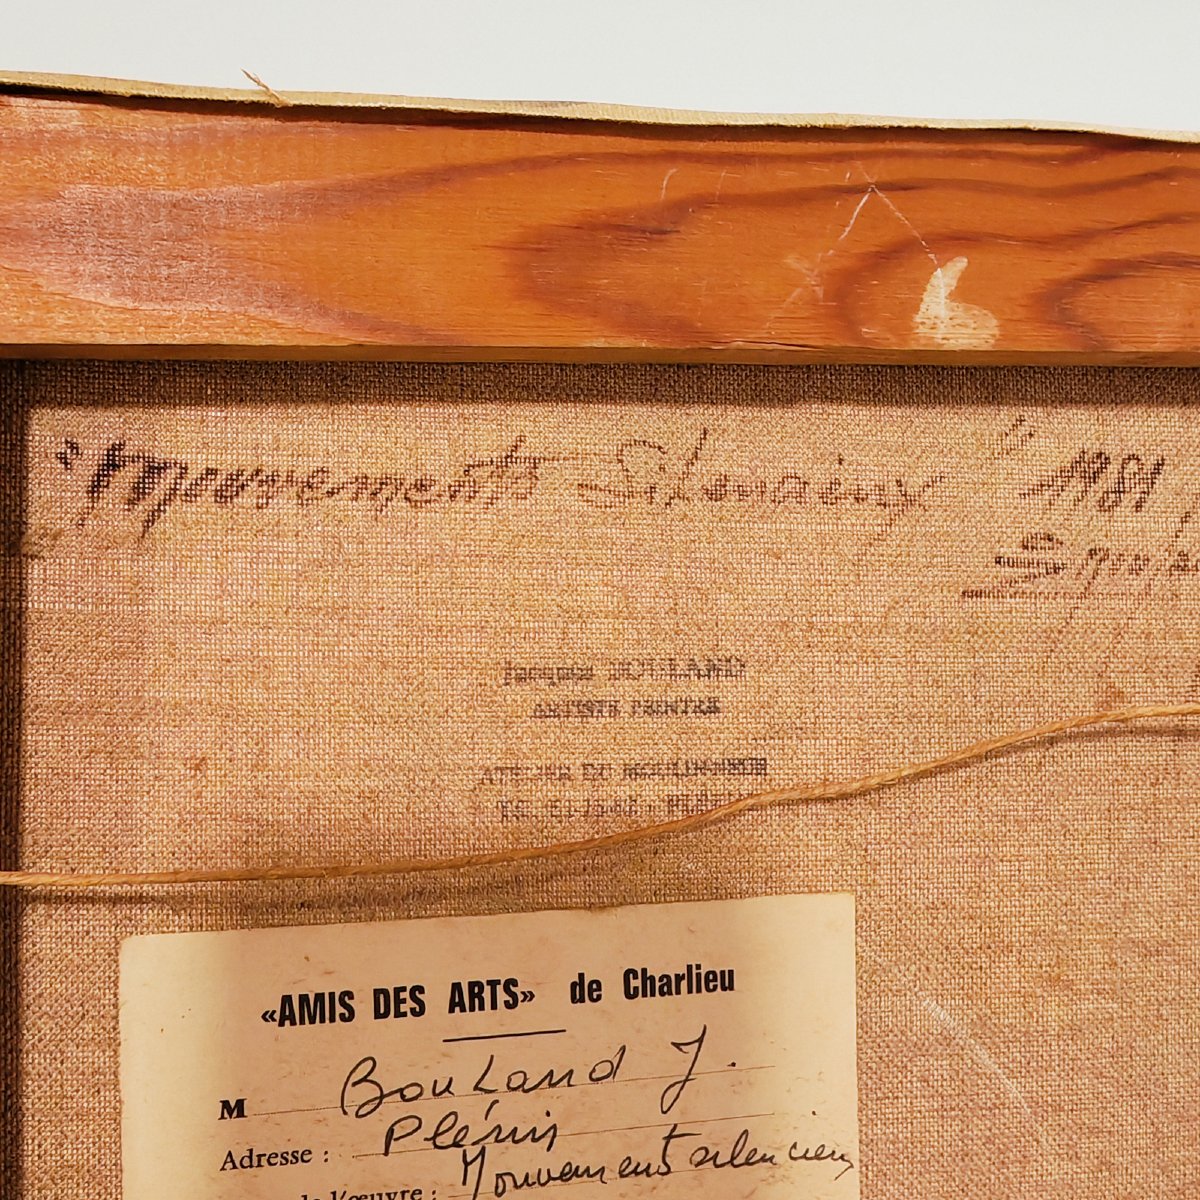 "Mouvements Silencieux" 1981
Jacques BOULAND
ARTISTE PEINTRE
ATELIER DU
«AMIS DES ARTS» de Charlieu
M Bouland J.
Adresse :
de l'œuvre : Mouvement silencieux